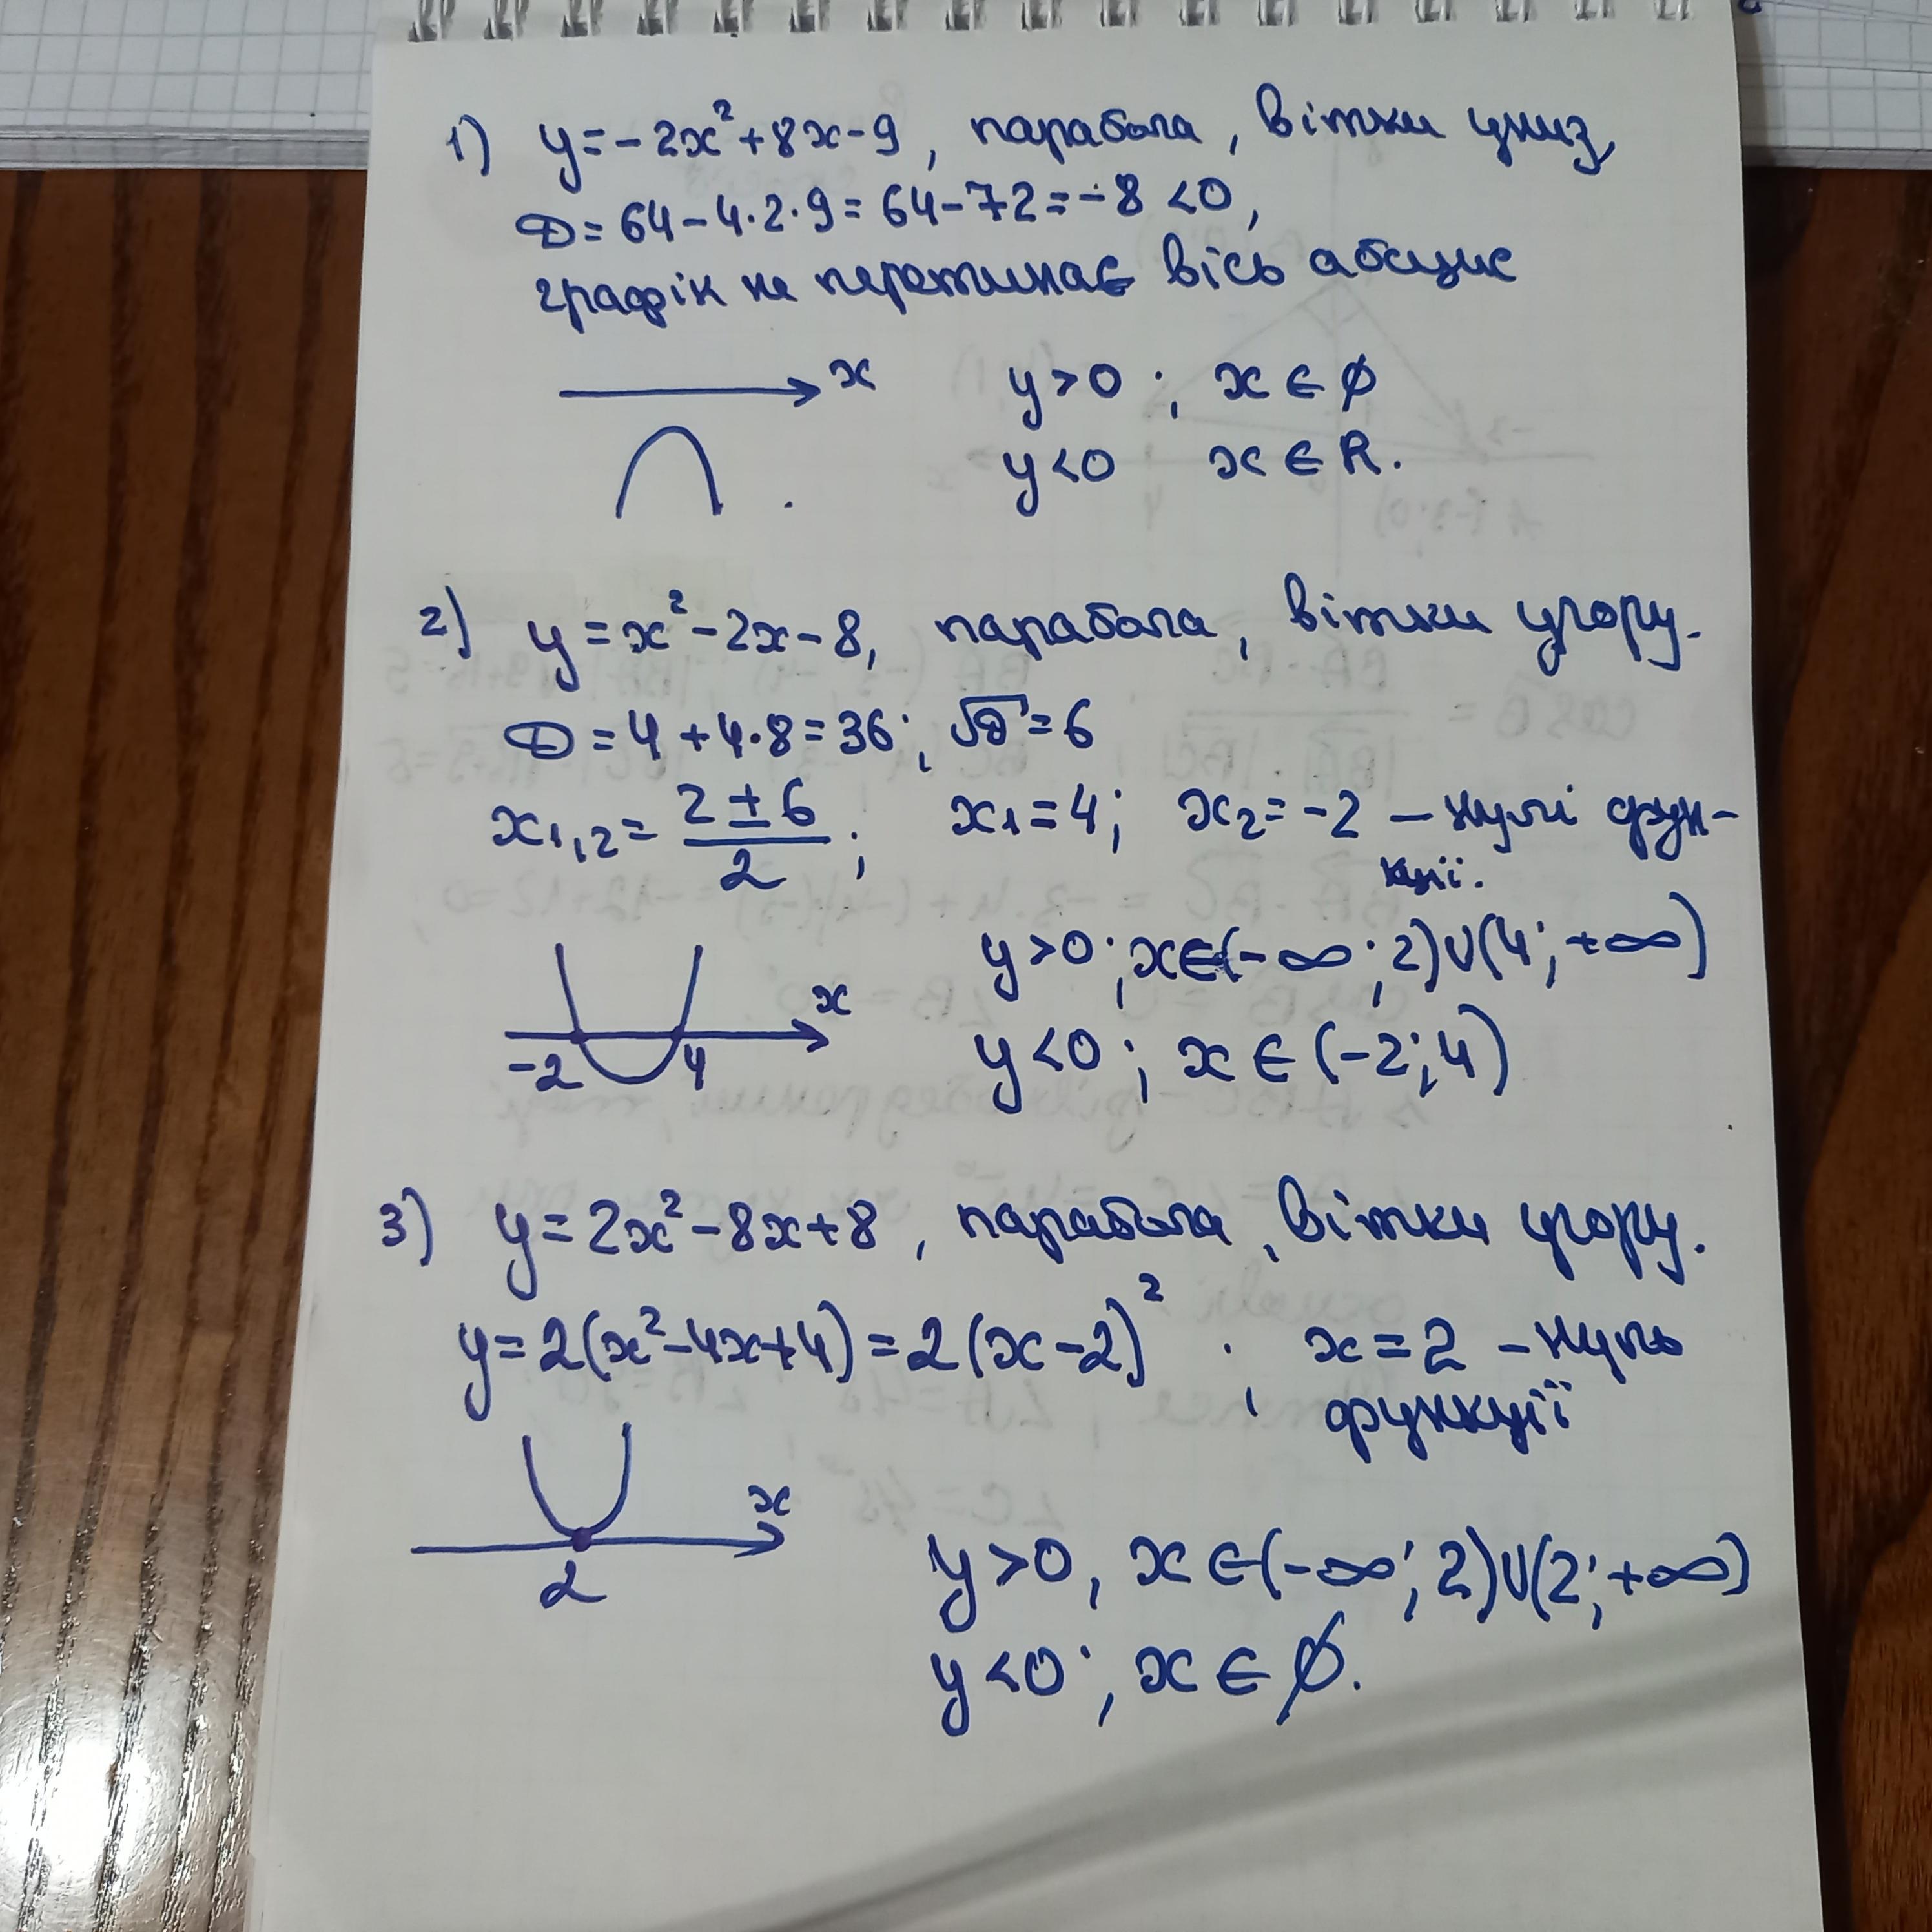 1) y=-2x²+8x-9, парабола, вітки униз,
D=64-4·2·9=64-72=-8<0,
графік не перетинає вісь абсцис
x
y>0; x∈∅
y<0 x∈R.
2) y=x²-2x-8, парабола, вітки угору.
D=4+4·8=36; √D=6
x₁,₂=(2±6)/2; x₁=4; x₂=-2 – нулі функ-
ції.
y>0; x∈(-∞;2)∪(4;+∞)
x
-2 4
y<0; x∈(-2;4)
3) y=2x²-8x+8, парабола, вітки угору.
y=2(x²-4x+4)=2(x-2)²; x=2 – нуль
функції
x
2
y>0, x∈(-∞;2)∪(2;+∞)
y<0; x∈∅.